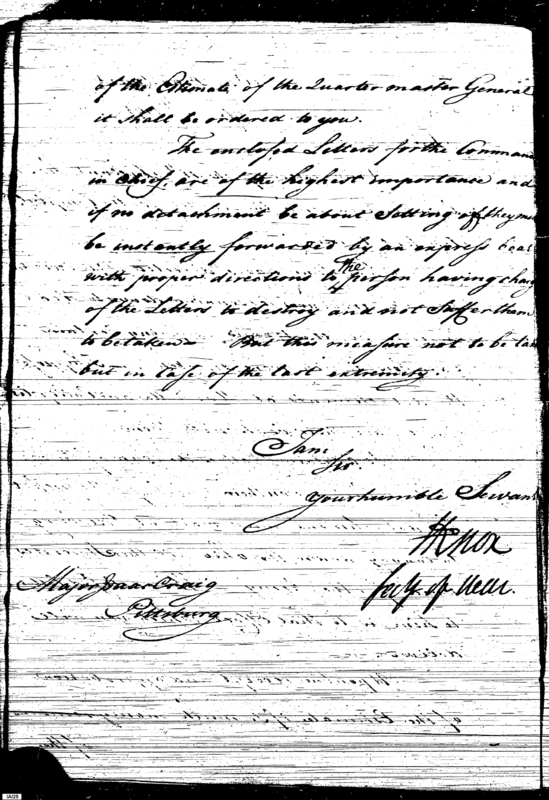 of the Estimate of the Quarter master General
it shall be ordered to you.
The enclosed Letters for the Comman
in chief, are of the highest importance and
if no detachment be about Setting off they mu
be instantly forwarded by an express boat
with proper directions to the person having charg
of the Letters to destroy and not Suffer them
to be taken — But this measure not to be tak
but in Case of the last extremity.
I am
Sir
your humble Servan
HKnox
Secy. of War.
Major Isaac Craig
Pittsburg
IAI25